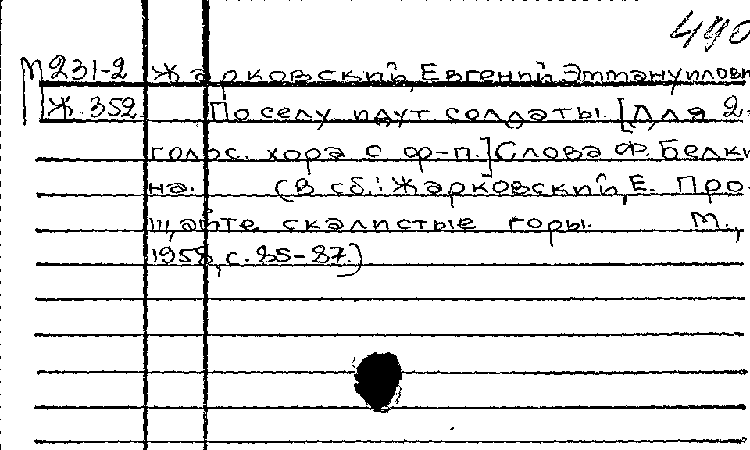 490
М231-2 Жарковский, Евгений Эммануилович
Ж.352 По селу идут солдаты. [Для 2-
голос. хора с ф-п.] Слова Ф. Белки
на. (В сб.: Жарковский, Е. Про-
щайте скалистые горы. М.,
1958, с. 85-87.)